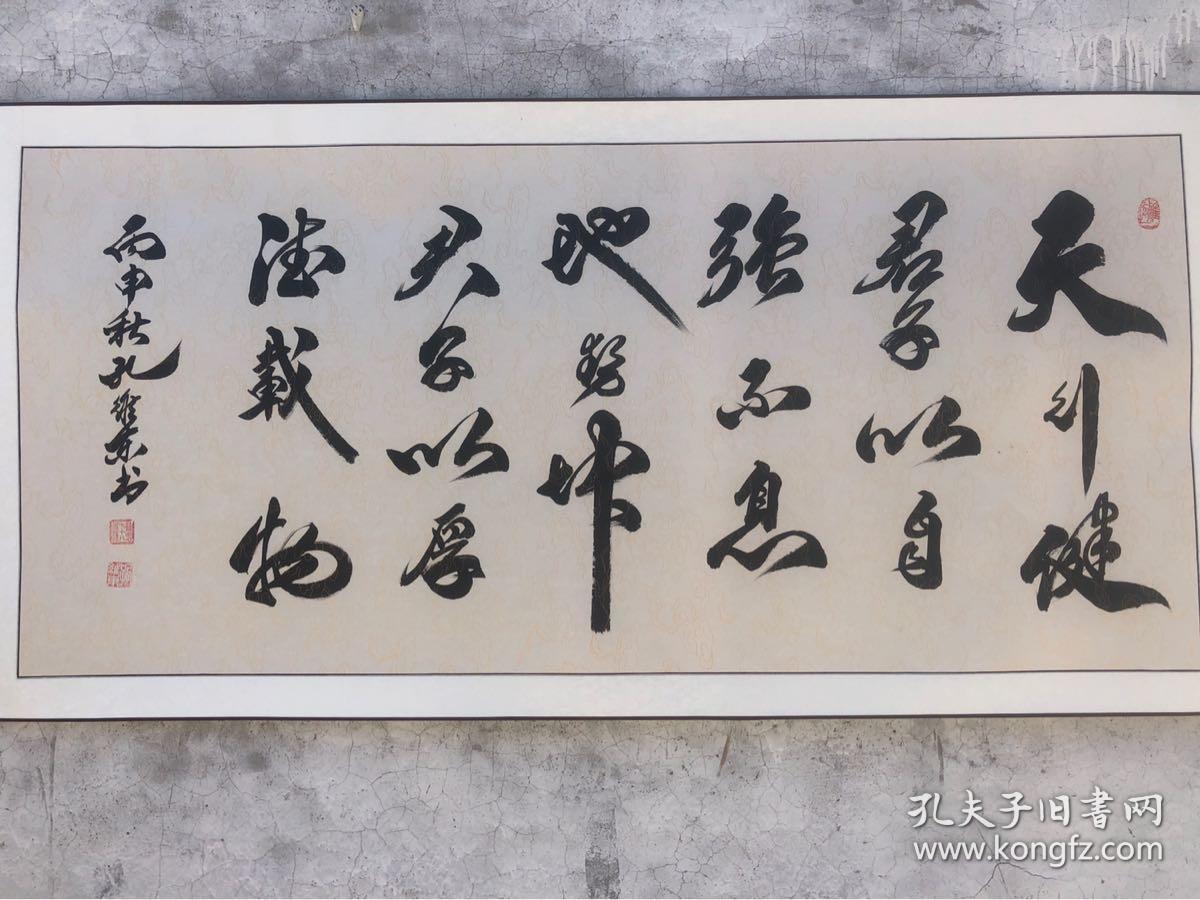 天行健
君子以自
強不息
地勢坤
君子以厚
德載物
丙申秋孔維東书
孔夫子旧書网
www.kongfz.com